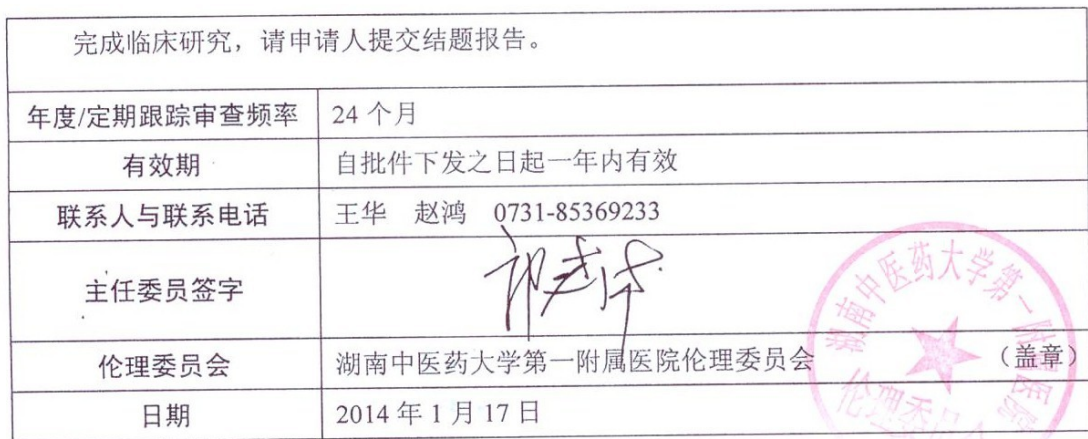 完成临床研究，请申请人提交结题报告。
年度/定期跟踪审查频率 24 个月
有效期 自批件下发之日起一年内有效
联系人与联系电话 王华 赵鸿 0731-85369233
主任委员签字
伦理委员会 湖南中医药大学第一附属医院伦理委员会 （盖章）
日期 2014 年 1 月 17 日
湖南中医药大学第一附属医院
伦理委员会